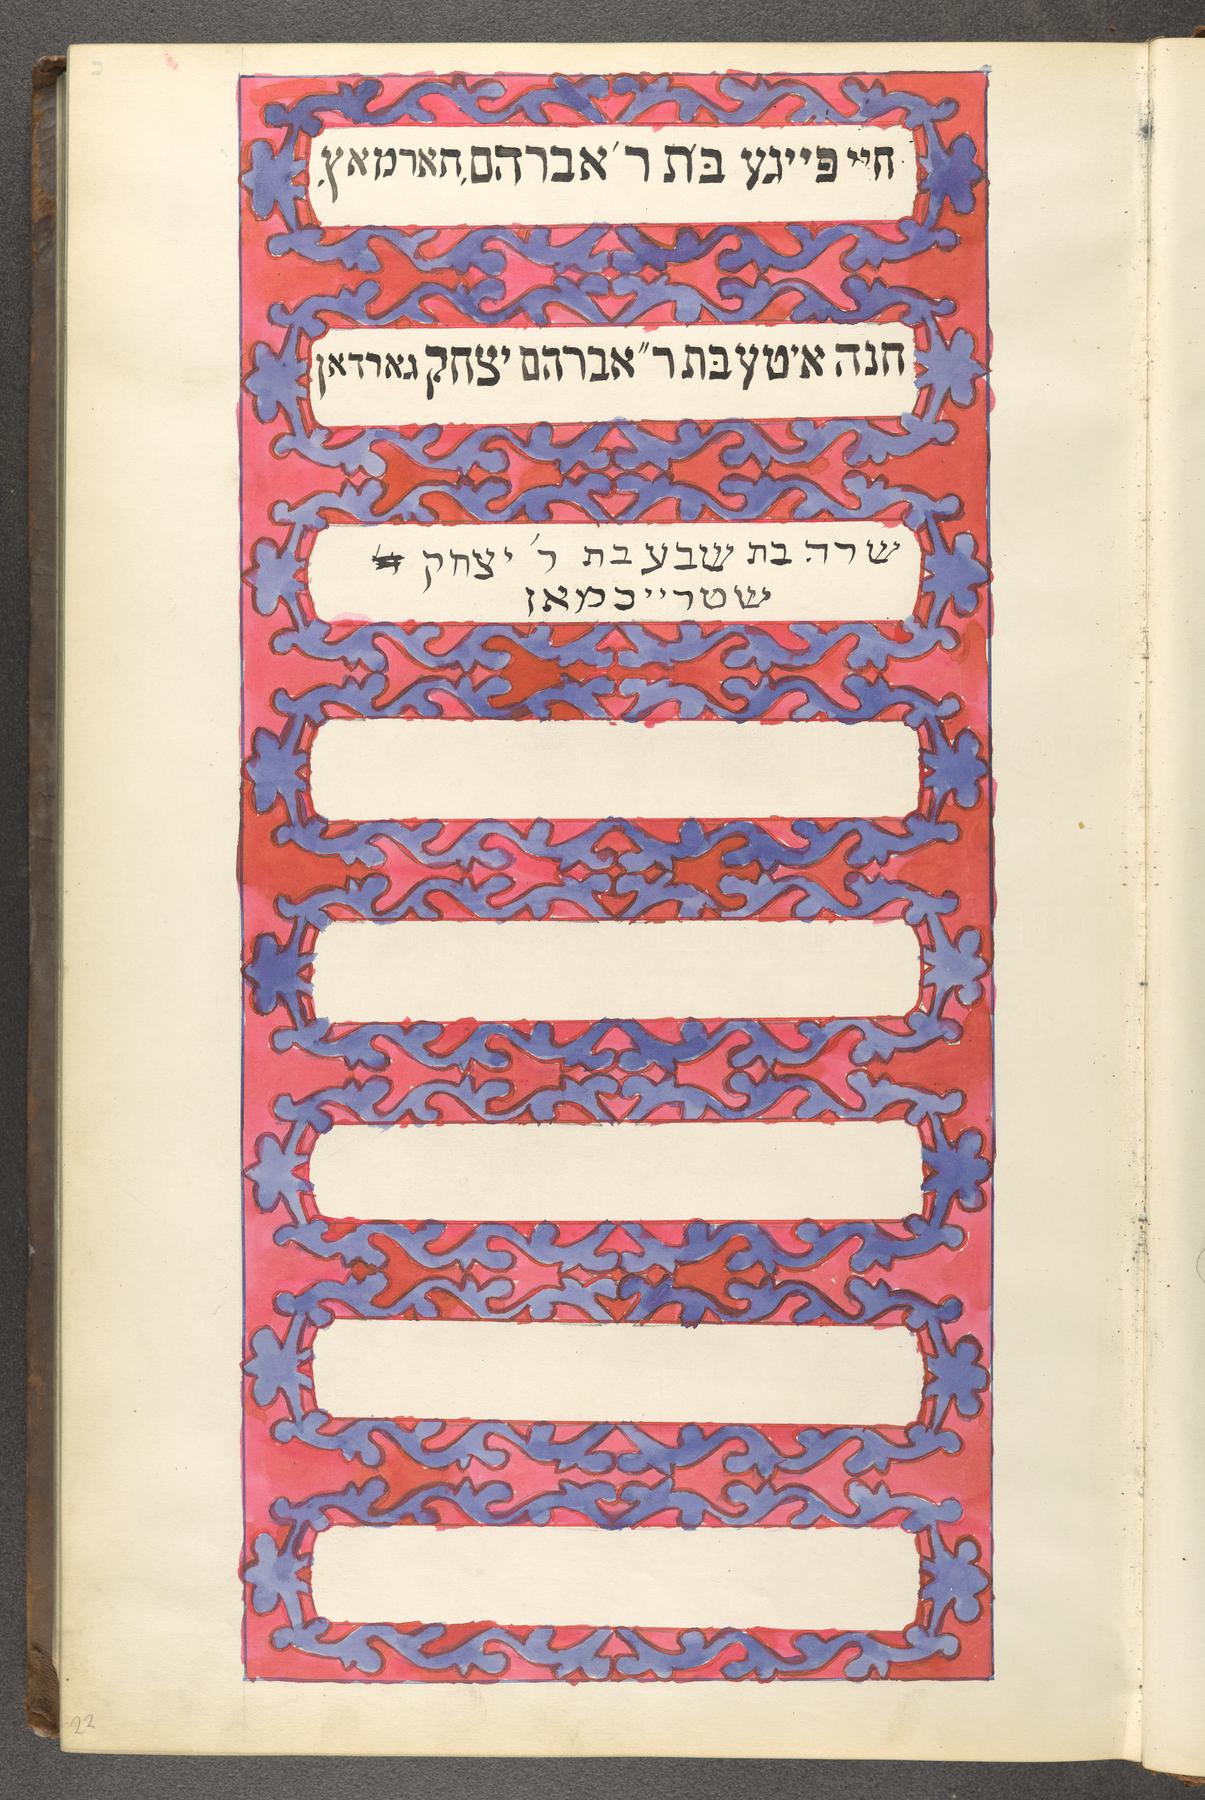 חיי פייגע בת ר' אברהם חארמאץ
חנה איטע בת ר" אברהם יצחק גארדאן
שרה בת שבע בת ר' יצחק
שטרייכמאן
22